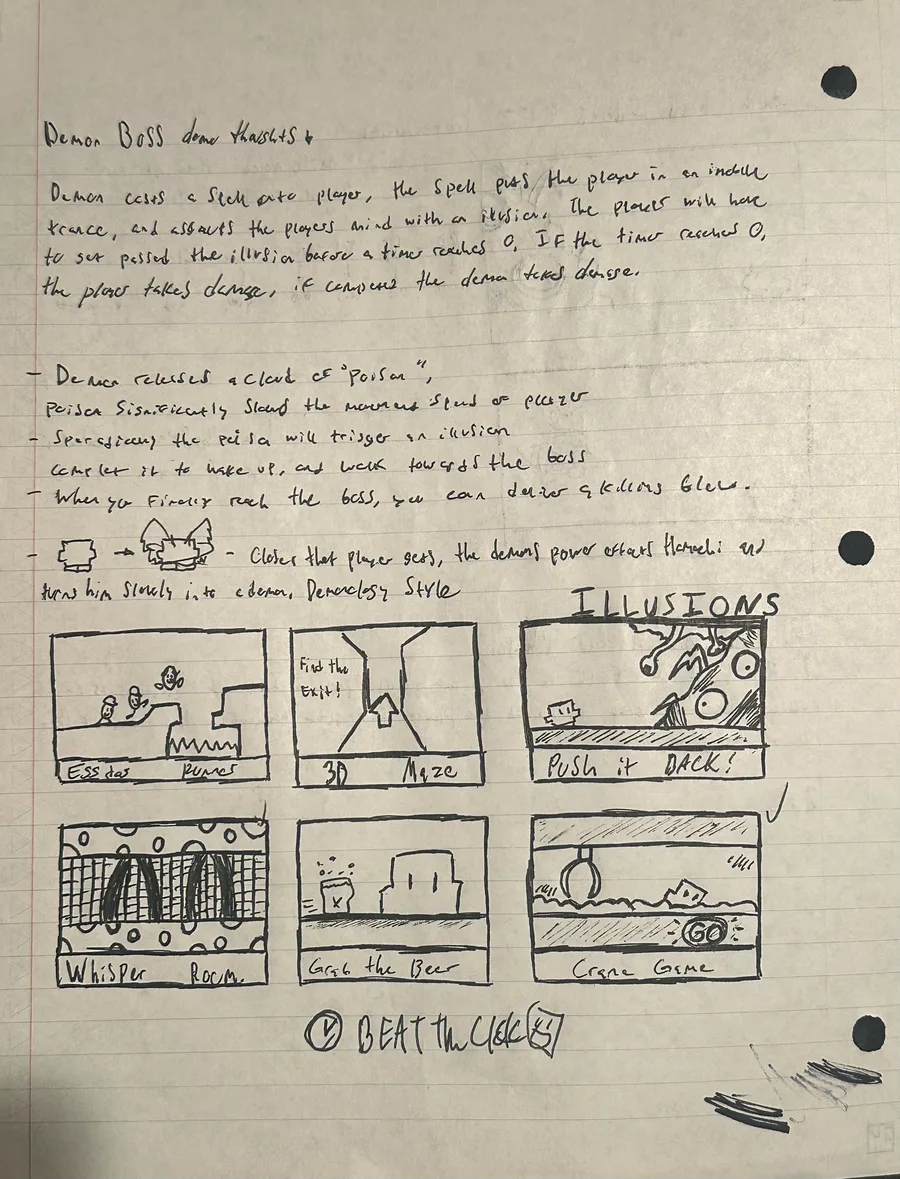 Demon Boss demo thoughts
Demon casts a spell onto player, the spell puts the player in an
trance, and assaults the players mind with an illusion. The player will have
to get passed the illusion before a timer reaches 0. If the timer reaches 0,
the player takes damage, if completed the demon takes damage.
- Demon releases a cloud of "Poison",
Poison significantly slows the movement speed of player
- Sporadically the poison will trigger an illusion
complet it to wake up, and walk towards the boss
- When you finally reach the boss, you can deliver a killing blow.
- Closer that player gets, the demons power effects Hamachi and
turns him slowly into a demon, Demonology Style
ILLUSIONS
Find the
Exit!
3D Maze
PUSH it BACK!
Whisper Room.
X
Grab the Beer
GO
Crane Game
BEAT the Clock